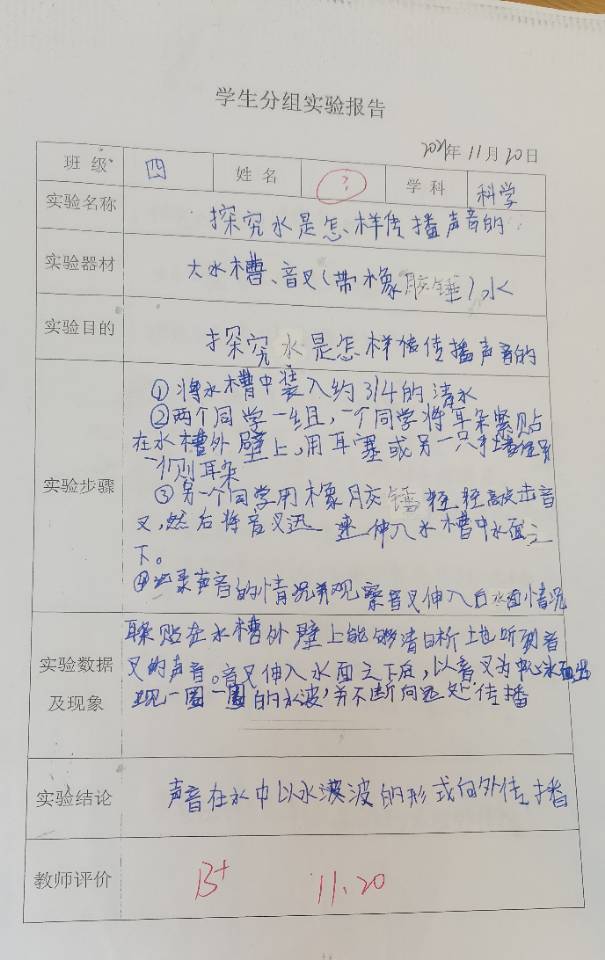 学生分组实验报告
2021年11月20日
班级 四 姓名 ? 学科 科学
实验名称 探究水是怎样传播声音的
实验器材 大水槽、音叉(带橡胶锤)水
实验目的 探究水是怎样传播声音的
实验步骤
①将水槽中装入约3/4的清水
②两个同学一组,一个同学将耳朵紧贴
在水槽外壁上,用耳塞或另一只手堵住另
一侧耳朵
③另一个同学用橡胶锤轻轻敲击音
叉,然后将音叉迅速伸入水槽中水面之
下。
④记录声音的情况并观察音叉伸入后水面情况
实验数据及现象
耳朵贴在水槽外壁上能够清晰地听到音
叉的声音。音叉伸入水面之下后,以音叉为中心水面出
现一圈一圈的水波,并不断向远处传播
实验结论 声音在水中以水波的形式向外传播
教师评价 B+ 11.20